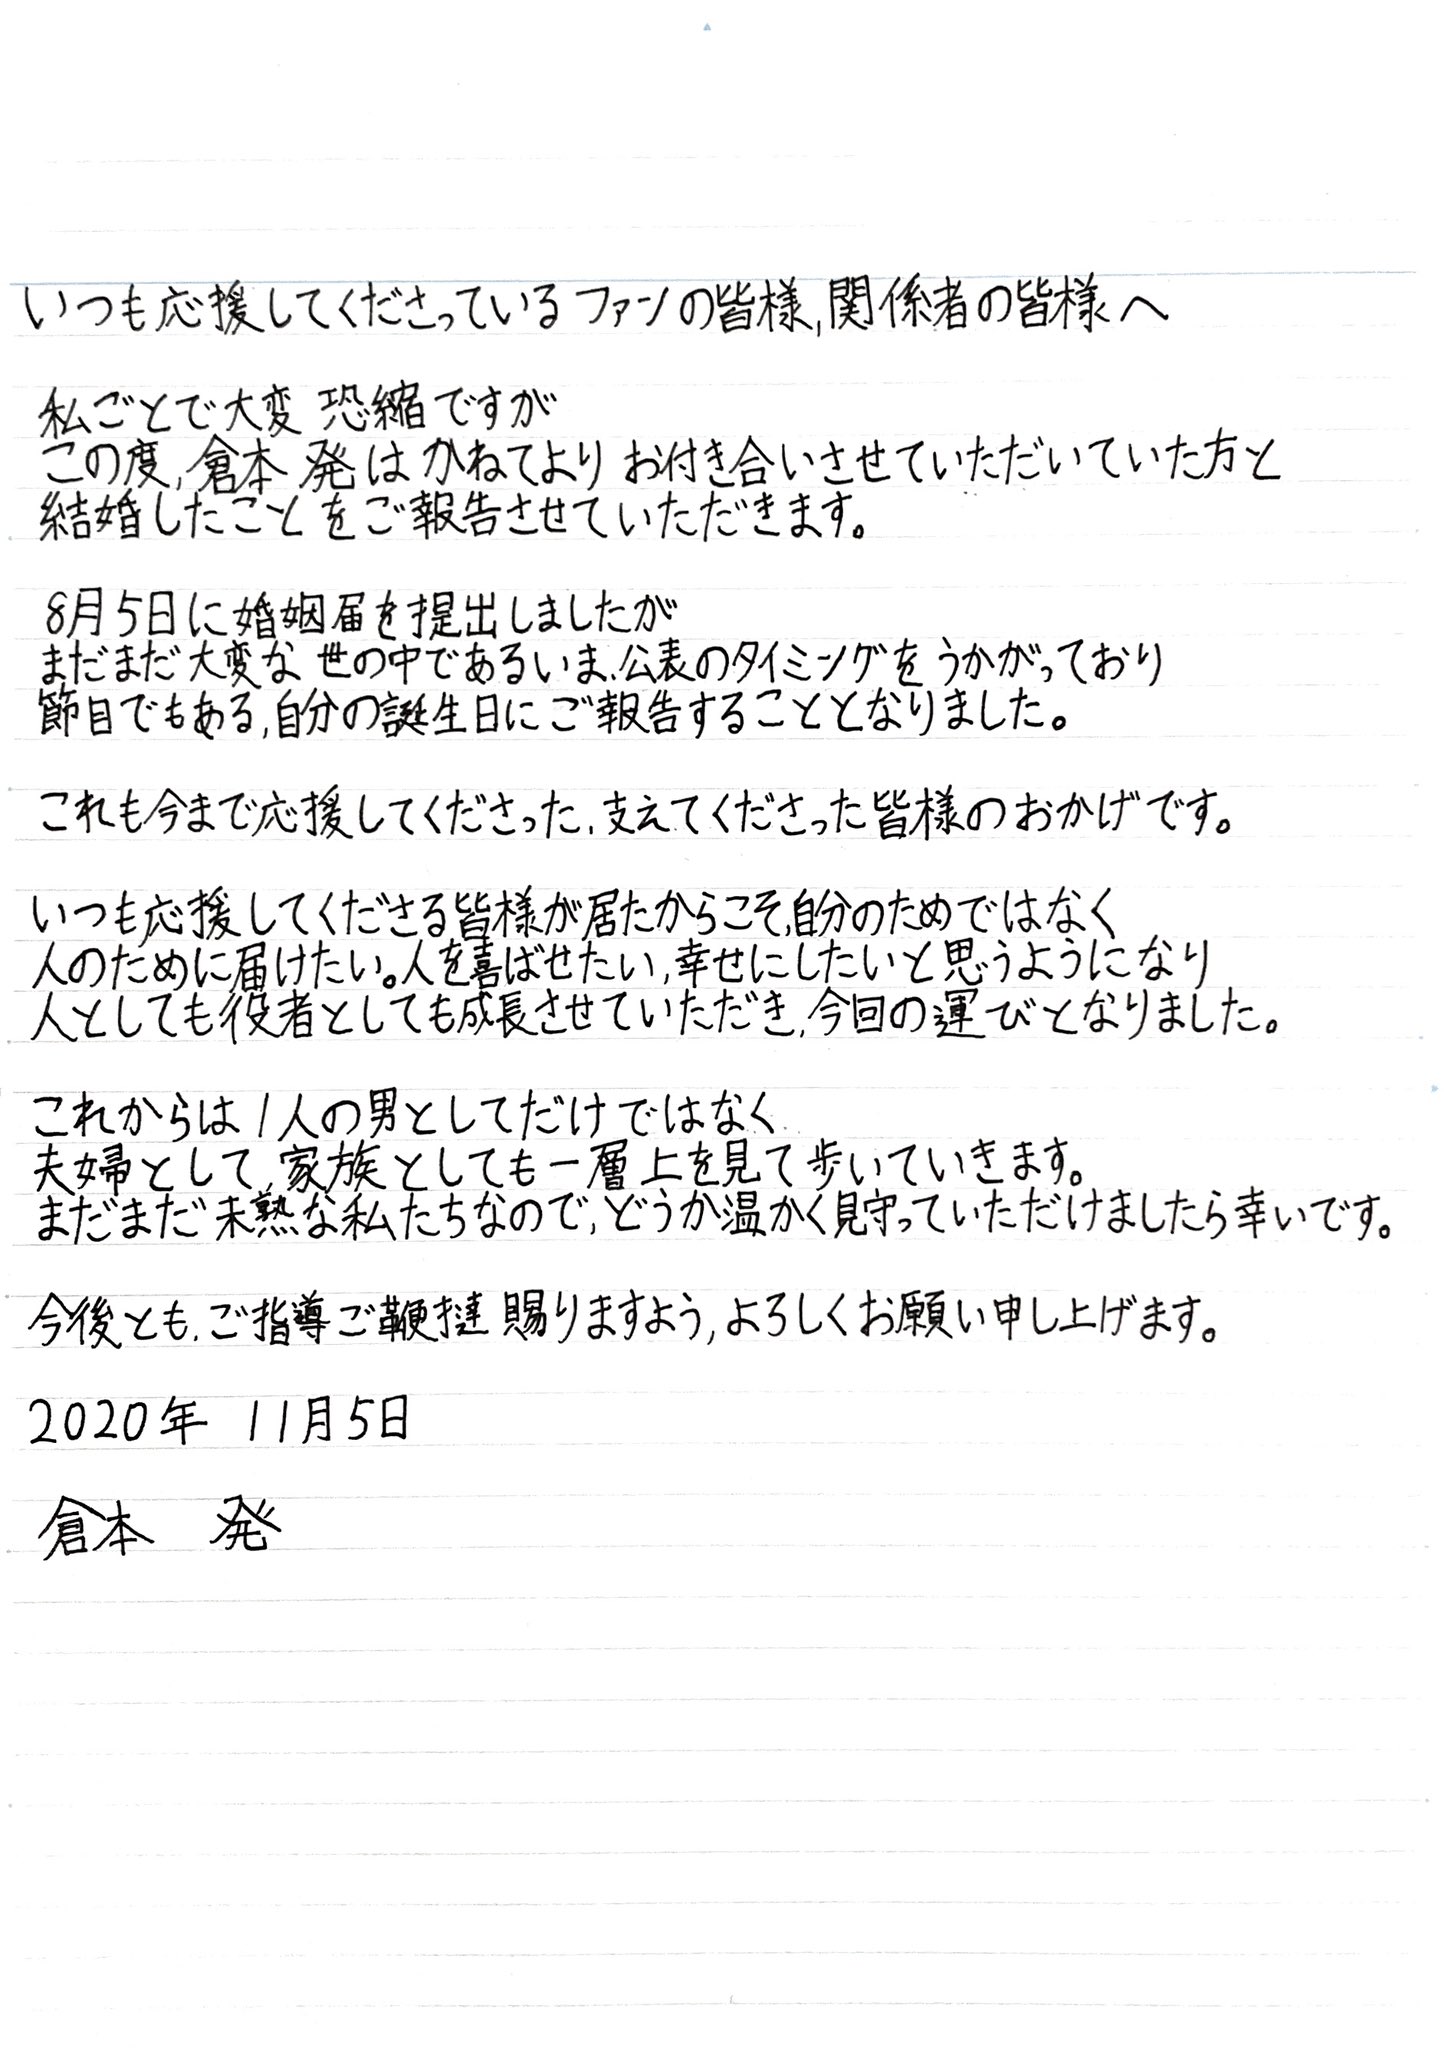 いつも応援してくださっているファンの皆様,関係者の皆様へ
私ごとで大変 恐縮ですが
この度,倉本 発はかねてよりお付き合いさせていただいていた方と
結婚したことをご報告させていただきます。
8月5日に婚姻届を提出しましたが
まだまだ大変な世の中であるいま、公表のタイミングをうかがっており
節目でもある,自分の誕生日にご報告することとなりました。
これも今まで応援してくださった、支えてくださった皆様のおかげです。
いつも応援してくださる皆様が居たからこそ,自分のためではなく
人のために届けたい。人を喜ばせたい,幸せにしたいと思うようになり
人としても役者としても成長させていただき,今回の運びとなりました。
これからは1人の男としてだけではなく
夫婦として,家族としても一層上を見て歩いていきます。
まだまだ未熟な私たちなので,どうか温かく見守っていただけましたら幸いです。
今後とも、ご指導ご鞭撻賜りますよう,よろしくお願い申し上げます。
2020年 11月5日
倉本 発